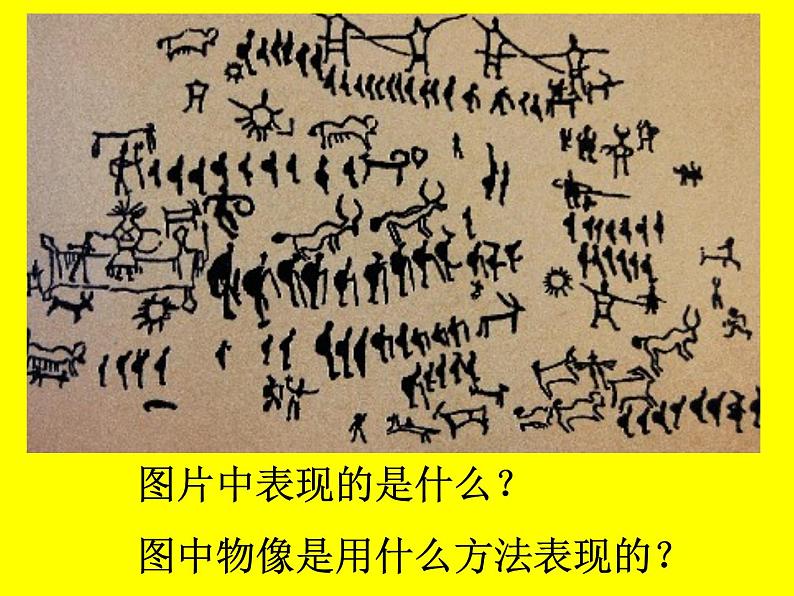 图片中表现的是什么？
图中物像是用什么方法表现的？